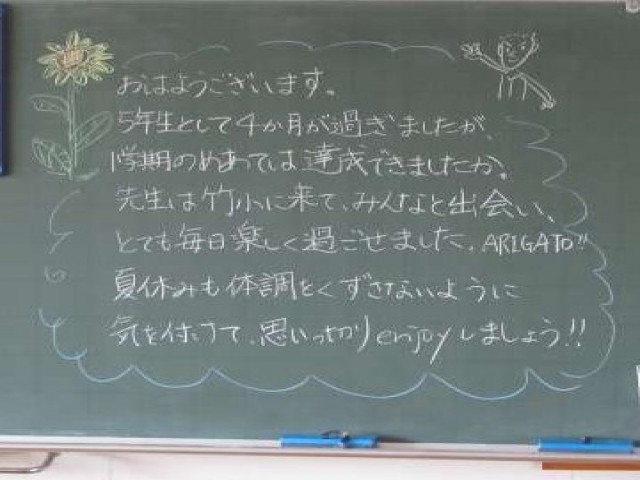 おはようございます。
5年生として4か月が過ぎましたが、
1学期のめあては達成できましたか。
先生は竹小に来て、みんなと出会い、
とても毎日楽しく過ごせました。ARIGATO!!
夏休みも体調をくずさないように
気を付けて、思いっ切りenjoyしましょう!!